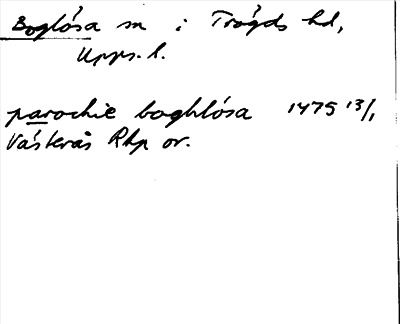 Boglósa sn i Trögds hd,
Upps. l.
parochie boghlósa 1475 13/1
Västerås Rhp or.